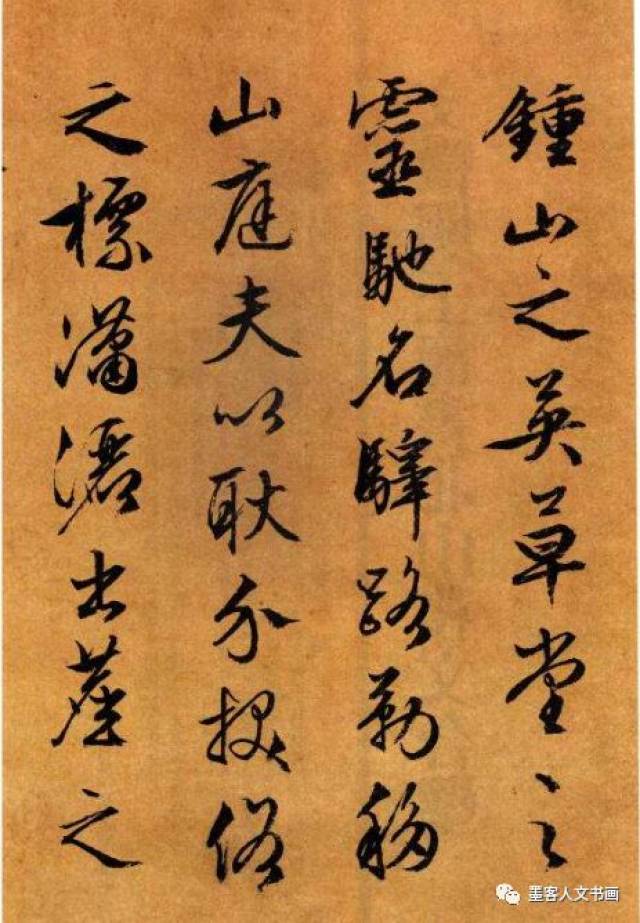 鍾山之英草堂之
靈馳名驛路勒移
山庭夫以耿介拔俗
之標瀟灑出塵之
墨客人文书画